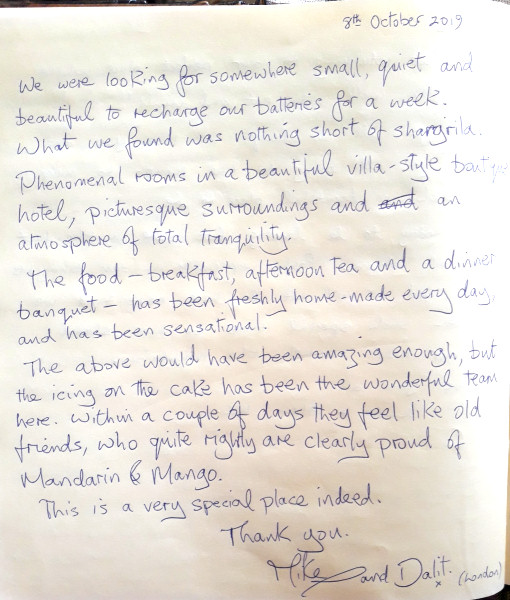 8th October 2019
We were looking for somewhere small, quiet and
beautiful to recharge our batteries for a week.
What we found was nothing short of shangrila.
Phenomenal rooms in a beautiful villa-style boutique
hotel, picturesque surroundings and and an
atmosphere of total tranquility.
The food – breakfast, afternoon tea and a dinner
banquet – has been freshly home-made every day,
and has been sensational.
The above would have been amazing enough, but
the icing on the cake has been the wonderful team
here. Within a couple of days they feel like old
friends, who quite rightly are clearly proud of
Mandarin & Mango.
This is a very special place indeed.
Thank you.
Mike and Dalit. x (London)